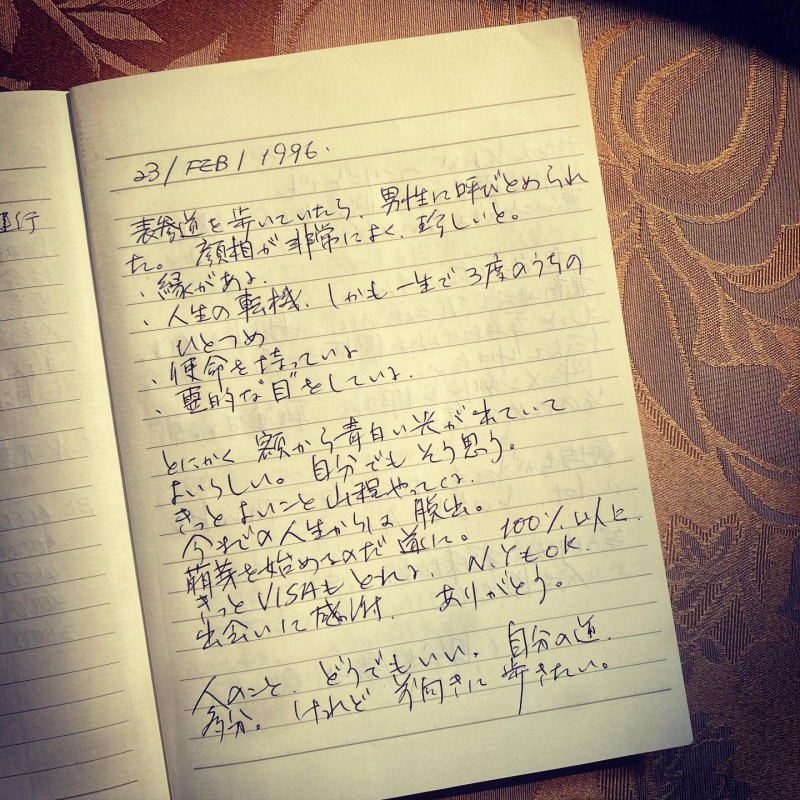 運行
23/FEB/1996.
表参道を歩いていたら、男性に呼びとめられ
た。顔相が非常によく、珍しいと。
・縁がある。
・人生の転機、しかも一生で3度のうちの
ひとつめ
・使命を持っている
・霊的な"目"をしている。
とにかく 額から青白い光が出ていて
よいらしい。自分でもそう思う。
きっとよいこと山程やってくる。
今までの人生からは 脱出。
萌芽を始めるのだ 道に。 100%以上に
きっとVISAもとれる。 N.YもOK.
出会いに感謝. ありがとう。
人のこと、どうでもいい。自分の道.
多分。けれど 前向きに歩きたい。